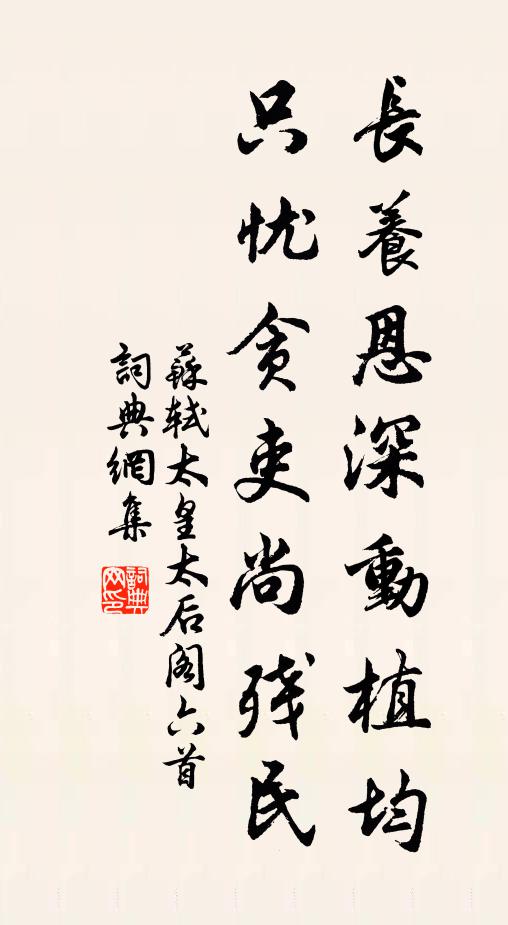 長養恩深動植均
只忧貪吏尚残民
蘇轼太皇太后阁六首
詞典網集
詞典网印